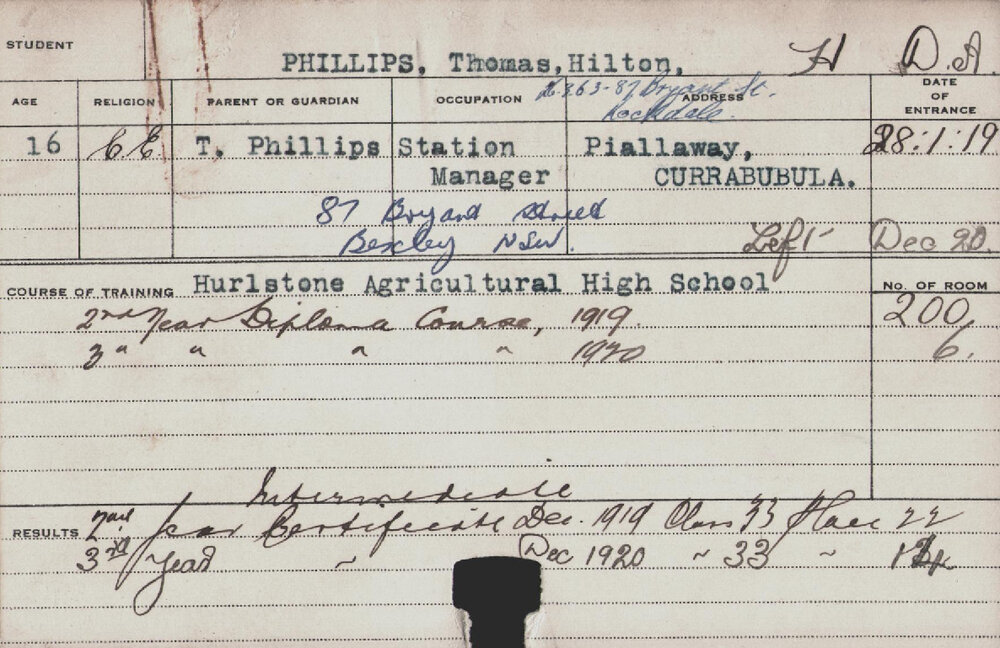 STUDENT PHILLIPS, Thomas, Hilton, H D.A.
AGE RELIGION PARENT OR GUARDIAN OCCUPATION ADDRESS DATE OF ENTRANCE
87 Bryant St.
Rockdale.
16 C E T. Phillips Station Piallaway, 28:1:19
Manager CURRABUBULA.
87 Bryant Street
Bexley NSW. Left Dec 20.
COURSE OF TRAINING Hurlstone Agricultural High School No. OF ROOM
2nd Year Diploma Course, 1919. 200
3" " " " 1920 6.
Intermediate
RESULTS 2nd Year Certificate Dec. 1919 Class 33 Place 22
3rd Year " Dec 1920 " 33 "